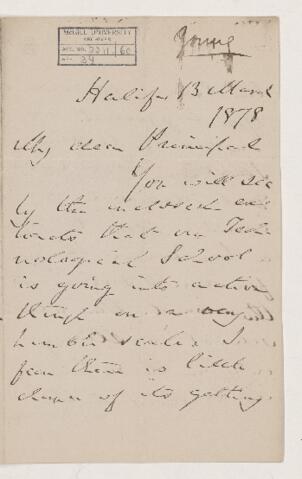 McGILL UNIVERSITY
ARCHIVES
ACC. NO. 2211/60
REF. 34
Young
Halifax 13 March
1878
My dear Principal
You will see
by the inclosed ex
tracts that our Tech
nological School
is going into active
though on a very
humble scale. I
fear there is little
chance of its getting